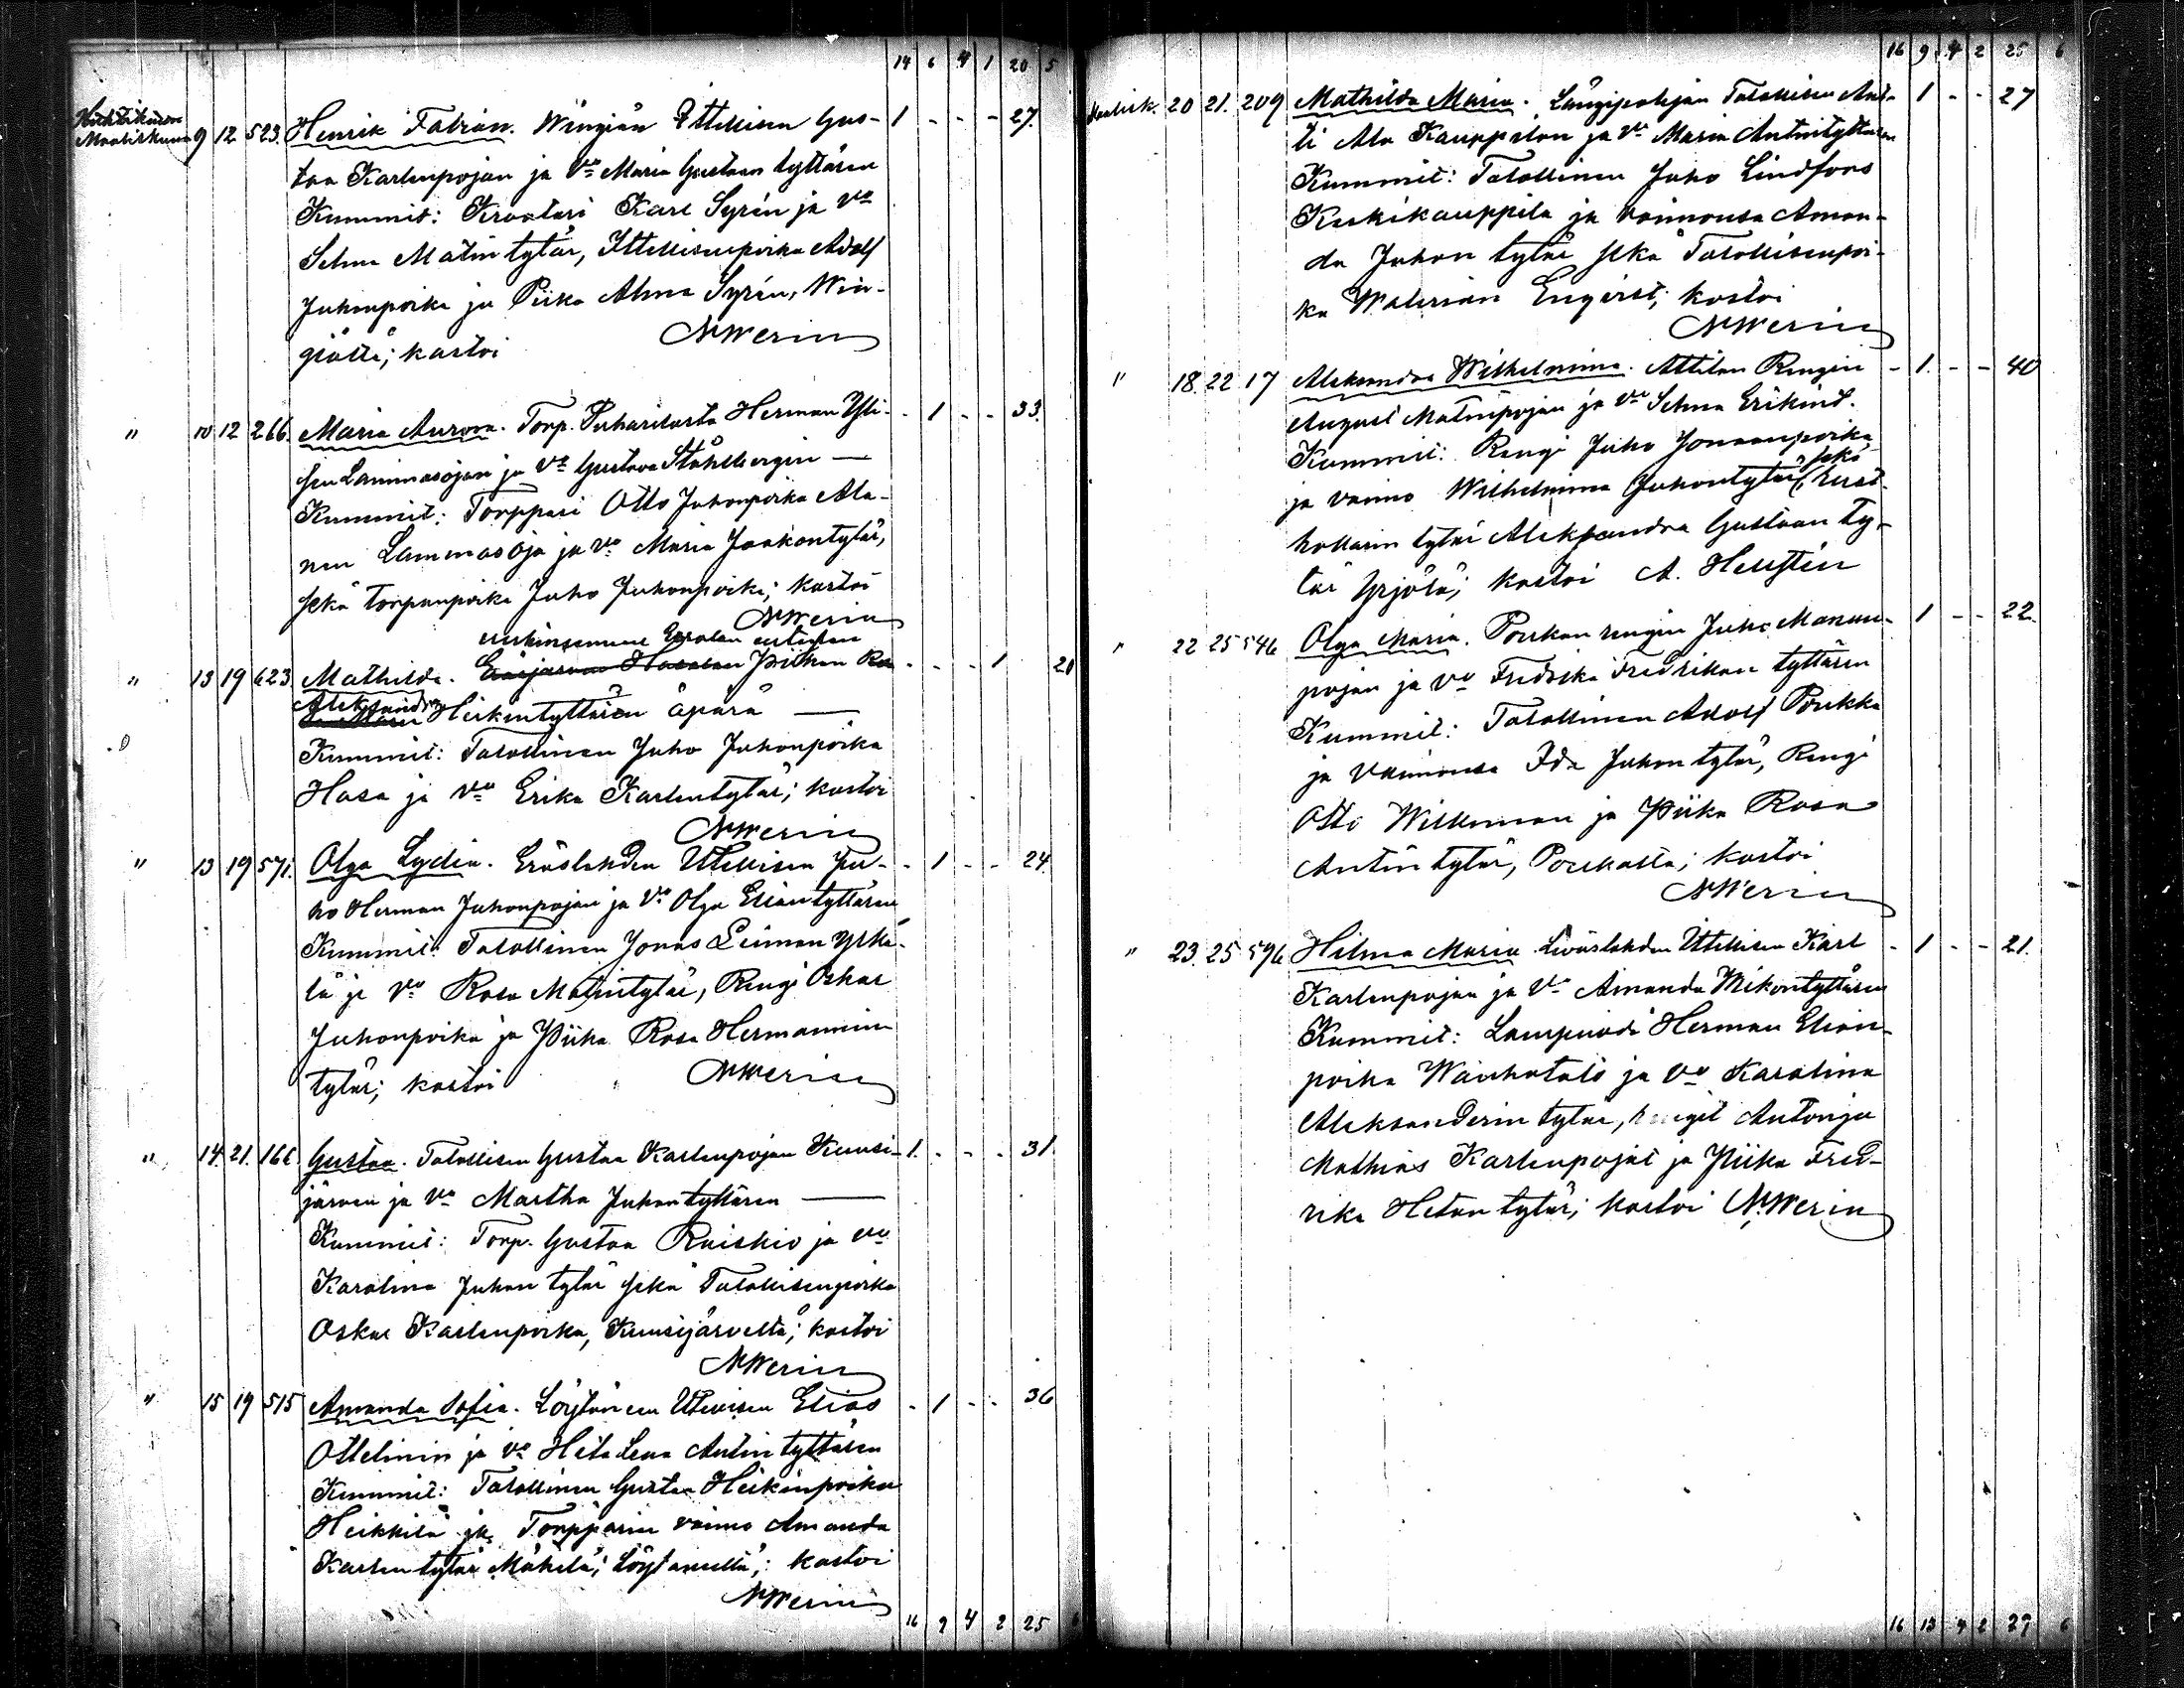 14 6 4 1 20 5
Maaliskuun 9 12 523. Henrik Fabian. Wingiän Ittellisen Gus- 1 - - - 27.
taa Karlenpojan ja Vo Maria Gustaan tyttären
Kummit: Kraatari Karl Syrén ja Vo
Selma Matin tytär, Ittellisenpoika Adolf
Juhonpoika ja Piika Alma Syrén, Win-
giältä; kastoi NWerin
" 10 12 266. Maria Aurora. Torp. Herman Yli- - 1 - - 33.
sen Lammasojan ja Vo Gustava Ståhlbergin —
Kummit: Torppari Otto Juhonpoika Ala-
nen Lammasoja ja Vo Maria Jaakontytär,
sekä torpanpoika Juho Juhonpoika; kastoi
NWerin
" 13 19 623 Mathilda. Piikan - - - 1 21
Aleksandra Heikintyttären äpärä —
Kummit: Talollinen Juho Juhonpoika
Hasa ja Vo Erika Karlentytär; kastoi
NWerin
" 13 19 571. Olga Lydia. Eräslahden Ittellisen Ju- - 1 - - 24.
ho Herman Juhonpojan ja Vo Olga Eliantyttären
Kummit: Talollinen Jonas Leiman Yrkö-
lä ja Vo Rosa Matintytär, Rengi Oskar
Juhonpoika ja Piika Rosa Hermannin
tytär; kastoi NWerin
" 14. 21. 166. Gustaa. Talollisen Gustaa Karlenpojan Kuusi- 1. - - - 31.
järven ja Vo Martha Juhontyttären —
Kummit: Torp. Gustaa Raiskio ja Vo
Karolina Juhon tytär sekä Talollisenpoika
Oskar Karlenpoika, Kuusijärveltä; kastoi
NWerin
" 15 19 515 Amanda Sofia. Löytäneen Ittellisen Elias - 1 - - 36
Ottelinin ja Vo Heta Lena Antin tyttären
Kummit: Talollinen Gustaa Heikinpoika
Heikkilä ja Torpparin vaimo Amanda
Karlen tytär Mäkelä; Löytäneeltä; kastoi
NWerin
16 9 4 2 25
16 9 4 2 25 6
Maalisk. 20 21. 209 Mathilda Maria. Långipohjan Talollisen Ant- 1 - - 27
ti Ala Kauppilan ja Vo Maria Antintyttären
Kummit: Talollinen Juho Lindfors
Keskikauppila ja vaimonsa Aman-
da Juhon tytär sekä Talollisenpoi-
ka Walerian Enqvist; kastoi
NWerin
" 18. 22 17 Aleksandra Wilhelmina. Attilan Rengin - 1. - - 40
August Matinpojan ja Vo Selma Erikint.
Kummit: Rengi Juho Jonaanpoika
ja vaimo Wilhelmina Juhontytär, sekä
tytär Aleksandra Gustaan ty-
tär Yrjölä; kastoi A. Hellstén
" 22 25 546 Olga Maria. Poukan rengin Juho Manan- 1 - - 22.
pojan ja Vo Fredrika Fredrikan tyttären
Kummit: Talollinen Adolf Poukka
ja vaimonsa Ida Juhon tytär, Rengi
Otto Willeman ja Piika Rosa
Antin tytär, Poukalta; kastoi
NWerin
" 23. 25 596 Hilma Maria. Liväslahden Ittellisen Karl - 1 - - 21.
Karlenpojan ja Vo Amanda Mikontyttären
Kummit: Lampuodi Herman Elian-
poika Wanhatalo ja Vo Karolina
Aleksanderin tytär, rengit Anton ja
Mathias Karlenpojat ja Piika Fred-
rika Hetan tytär; kastoi NWerin
16 13 4 2 29 6